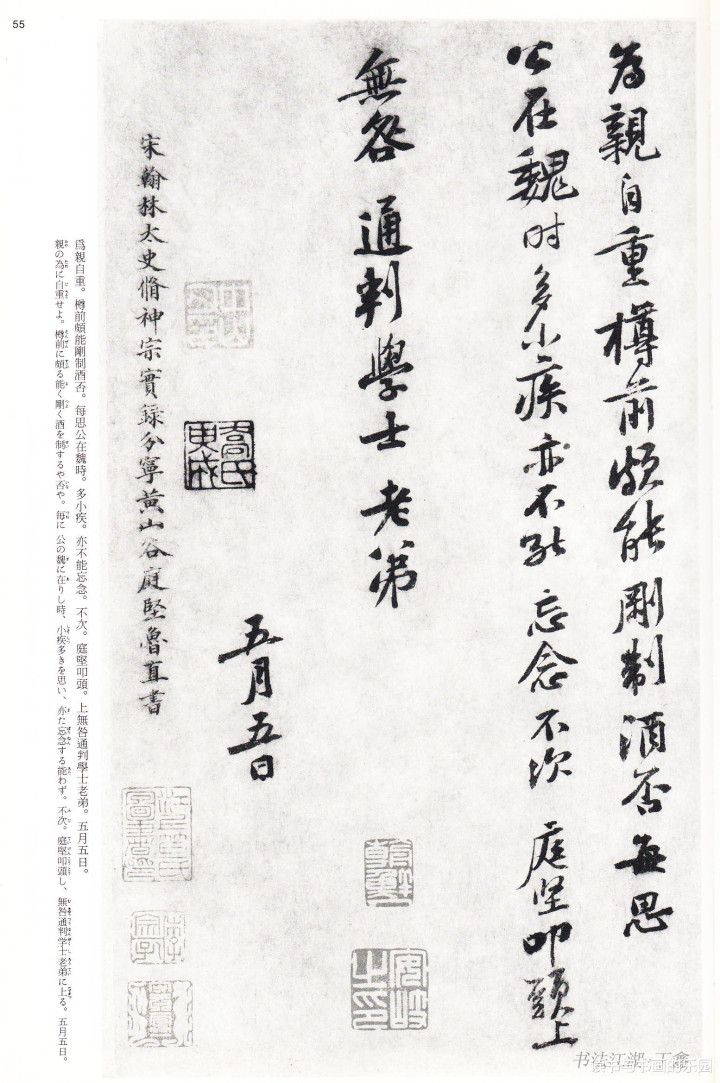 55
為親自重樽前頗能剛制酒否每思
公在魏时多小疾亦不能忘念不次 庭坚叩頭上
無咎 通判學士老弟
五月五日
宋翰林太史脩神宗實録分寧黄山谷庭堅魯直書
喬氏
安岐之印
朝鮮
為親自重。樽前頗能剛制酒否。每思公在魏時。多小疾。亦不能忘念。不次。庭堅叩頭。上無咎通判學士老弟。五月五日。
親の為に自重せよ。樽前に頗る能く剛く酒を制するや否や。毎に公の魏に在りし時、小疾多きを思い、亦た忘念する能わず。不次。庭堅叩頭し、無咎通判学士老弟に上る。五月五日。
书法江湖 王鑫
读书与书画的乐园